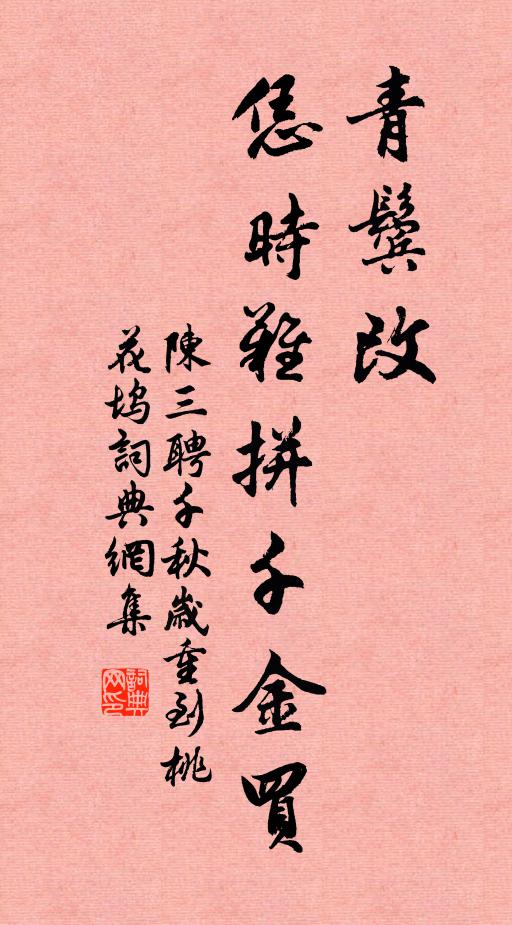 青鬢改
恁時難拼千金買
陳三聘千秋歲重到桃
花塢詞典網集
詞典
网印